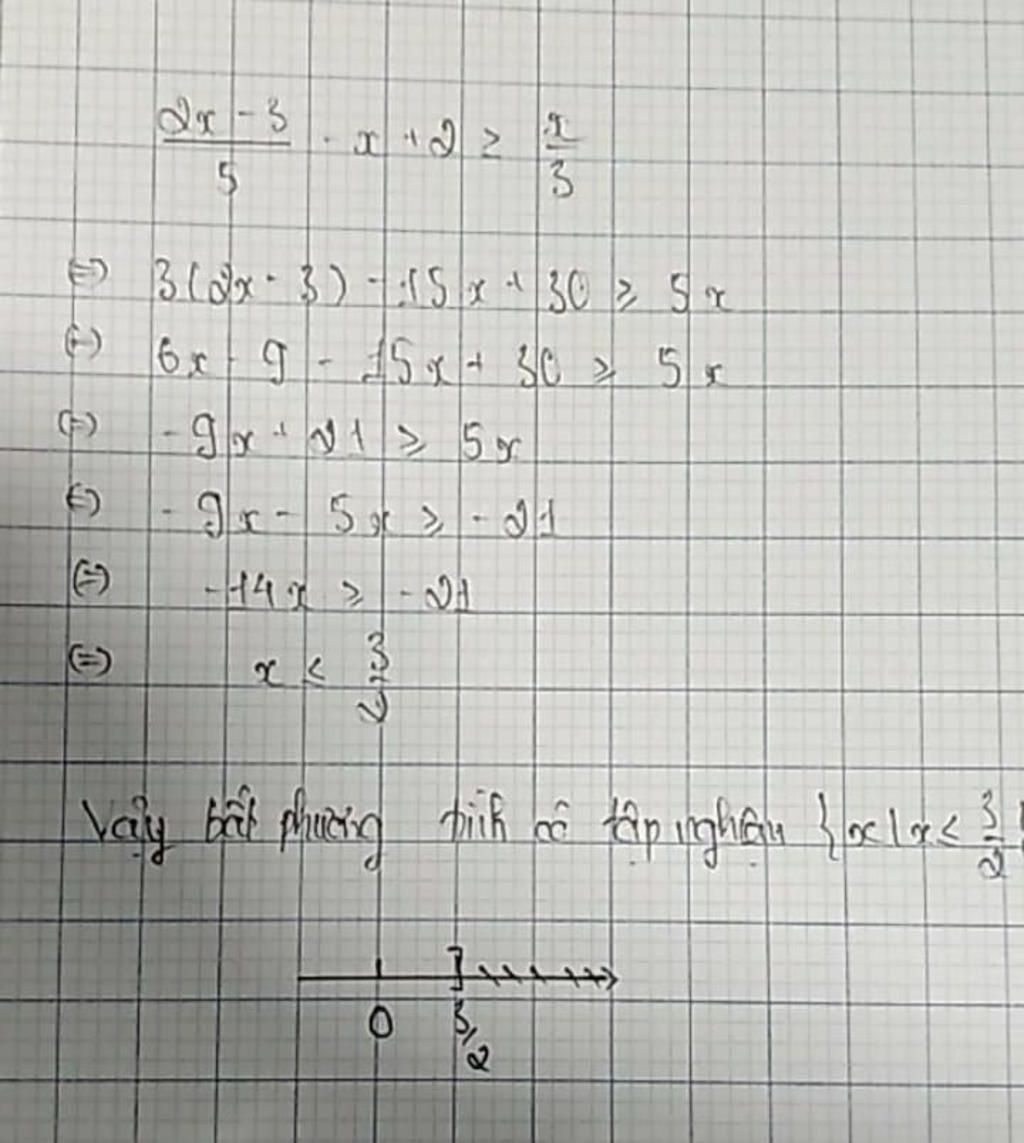 (2x - 3)/5 - x + 2 ≥ x/3
(=) 3(2x - 3) - 15x + 30 ≥ 5x
(=) 6x - 9 - 15x + 30 ≥ 5x
(=) -9x + 21 ≥ 5x
(=) -9x - 5x ≥ -21
(=) -14x ≥ -21
(=) x ≤ 3/2
Vậy bất phương trình có tập nghiệm {x | x ≤ 3/2}
0 3/2